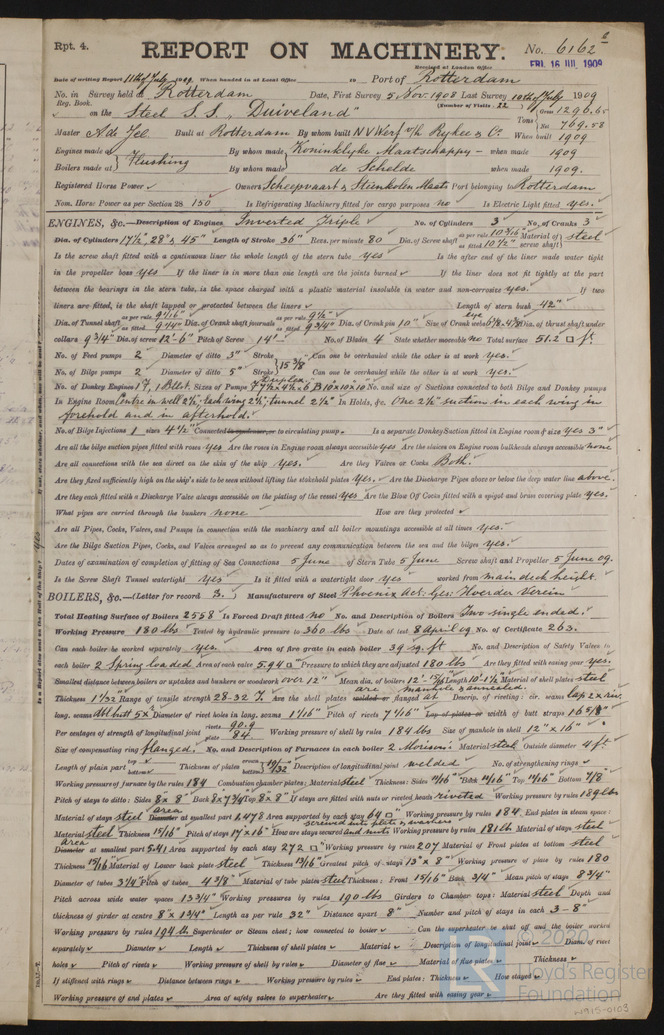 Rpt. 4.
REPORT ON MACHINERY.
No. 6162
Received at London Office
FRI. 16 JUL 1909
Date of writing Report 11th of July 1909 When handed in at Local Office 10 Port of Rotterdam
No. in Survey held at Rotterdam Date, First Survey 5 Nov. 1908 Last Survey 10th of July 1909
Reg. Book. (Number of Visits 22)
on the Steel S.S. "Duiveland" Tons Gross 1296.65 Net 769.58
Master A de Jee Built at Rotterdam By whom built N V Werf v/h Rykee & Co. When built 1909
Engines made at Flushing By whom made Koninklyke Maatschappy - when made 1909
Boilers made at By whom made de Schelde when made 1909.
Registered Horse Power Owners Scheepvaart & Steenkolen Maats Port belonging to Rotterdam
Nom. Horse Power as per Section 28 150 Is Refrigerating Machinery fitted for cargo purposes no Is Electric Light fitted yes.
ENGINES, &c.—Description of Engines Inverted Triple No. of Cylinders 3 No. of Cranks 3
Dia. of Cylinders 17½" 28" & 45" Length of Stroke 36" Revs. per minute 80 Dia. of Screw shaft as per rule 10 3/16" as fitted 10½" Material of screw shaft steel
Is the screw shaft fitted with a continuous liner the whole length of the stern tube yes Is the after end of the liner made water tight
in the propeller boss yes If the liner is in more than one length are the joints burned If the liner does not fit tightly at the part
between the bearings in the stern tube, is the space charged with a plastic material insoluble in water and non-corrosive yes. If two
liners are fitted, is the shaft lapped or protected between the liners Length of stern bush 42"
Dia. of Tunnel shaft as per rule 9 1/16" as fitted 9¼" Dia. of Crank shaft journals as per rule 9½" as fitted 9¾" Dia. of Crank pin 10" Size of Crank webs Dia. of thrust shaft under
collars 9¾" Dia. of screw 12'-6" Pitch of Screw 14' No. of Blades 4 State whether moveable no Total surface 51.2 □ ft.
No. of Feed pumps 2 Diameter of ditto 3" Stroke 15 3/8" Can one be overhauled while the other is at work yes.
No. of Bilge pumps 2 Diameter of ditto 5" Stroke Can one be overhauled while the other is at work yes.
No. of Donkey Engines 1 F, 1 Bllst. Sizes of Pumps Duplex 7½ x 4½ x 6 B 10x10x10 No. and size of Suctions connected to both Bilge and Donkey pumps
In Engine Room Centre in well 2½", Each wing 2½", tunnel 2½" In Holds, &c. One 2½" suction in each wing in
forehold and in afterhold.
No. of Bilge Injections 1 sizes 4½" Connected to condenser, or to circulating pump. Is a separate Donkey Suction fitted in Engine room & size yes 3"
Are all the bilge suction pipes fitted with roses yes Are the roses in Engine room always accessible yes Are the sluices on Engine room bulkheads always accessible none
Are all connections with the sea direct on the skin of the ship yes. Are they Valves or Cocks Both.
Are they fixed sufficiently high on the ship's side to be seen without lifting the stokehold plates yes. Are the Discharge Pipes above or below the deep water line above.
Are they each fitted with a Discharge Valve always accessible on the plating of the vessel yes Are the Blow Off Cocks fitted with a spigot and brass covering plate yes.
What pipes are carried through the bunkers none How are they protected
Are all Pipes, Cocks, Valves, and Pumps in connection with the machinery and all boiler mountings accessible at all times yes.
Are the Bilge Suction Pipes, Cocks, and Valves arranged so as to prevent any communication between the sea and the bilges yes.
Dates of examination of completion of fitting of Sea Connections 5 June of Stern Tube 5 June Screw shaft and Propeller 5 June 09.
Is the Screw Shaft Tunnel watertight Yes Is it fitted with a watertight door yes worked from main deck height.
BOILERS, &c.—(Letter for record B.) Manufacturers of Steel Phoenix Act: Ges: Hoerder Verein
Total Heating Surface of Boilers 2558 Is Forced Draft fitted no No. and Description of Boilers Two single ended.
Working Pressure 180 lbs Tested by hydraulic pressure to 360 lbs Date of test 8 April 09. No. of Certificate 263.
Can each boiler be worked separately yes. Area of fire grate in each boiler 39 sq. ft No. and Description of Safety Valves to
each boiler 2 Spring loaded Area of each valve 5.94 □" Pressure to which they are adjusted 180 lbs Are they fitted with easing gear yes.
Smallest distance between boilers or uptakes and bunkers or woodwork over 12" Mean dia. of boilers Length 10'-1½" Material of shell plates steel
Thickness 1 1/32" Range of tensile strength 28-32 T. Are the shell plates welded or flanged are manhole & annealed. Descrip. of riveting: cir. seams lap 2 x riv.
long. seams dbl butt 5x Diameter of rivet holes in long. seams 1 1/16" Pitch of rivets 7 1/16" Lap of plates or width of butt straps 16 5/8"
Per centages of strength of longitudinal joint rivets 90.9 plate 84 Working pressure of shell by rules 184 lbs Size of manhole in shell 12" x 16"
Size of compensating ring flanged. No. and Description of Furnaces in each boiler 2 Morison's Material steel Outside diameter 4 ft.
Length of plain part top bottom Thickness of plates crown bottom Description of longitudinal joint welded No. of strengthening rings
Working pressure of furnace by the rules 184 Combustion chamber plates: Material steel Thickness: Sides 11/16" Back 11/16" Top 11/16" Bottom 7/8"
Pitch of stays to ditto: Sides 8" x 8" Back 8" x 7¾" Top 8" x 8" If stays are fitted with nuts or riveted heads riveted Working pressure by rules 189 lbs
Material of stays steel area Diameter at smallest part 1.478 Area supported by each stay 64 □" Working pressure by rules 184. End plates in steam space:
Material steel Thickness 15/16" Pitch of stays 17" x 16" How are stays secured screwed into plate & washers and nuts Working pressure by rules 181 lb Material of stays steel
area Diameter at smallest part 5.41 Area supported by each stay 272 □" Working pressure by rules 207 Material of Front plates at bottom steel
Thickness 15/16 Material of Lower back plate steel Thickness 13/16" Greatest pitch of stays 13" x 8" Working pressure of plate by rules 180
Diameter of tubes 3¼" Pitch of tubes 4 3/8" Material of tube plates steel Thickness: Front 15/16" Back 3/4" Mean pitch of stays 8¾"
Pitch across wide water spaces 13¾" Working pressures by rules 190 lbs Girders to Chamber tops: Material steel Depth and
thickness of girder at centre 8" x 1¾" Length as per rule 32" Distance apart 8" Number and pitch of stays in each 3-8"
Working pressure by rules 194 lb Superheater or Steam chest; how connected to boiler Can the superheater be shut off and the boiler worked
separately Diameter Length Thickness of shell plates Material Description of longitudinal joint Diam. of rivet
holes Pitch of rivets Working pressure of shell by rules Diameter of flue Material of flue plates Thickness
If stiffened with rings Distance between rings Working pressure by rules End plates: Thickness How stayed
Working pressure of end plates Area of safety valves to superheater Are they fitted with easing gear
© 2020
LR
Lloyd's Register
Foundation
W915-0103